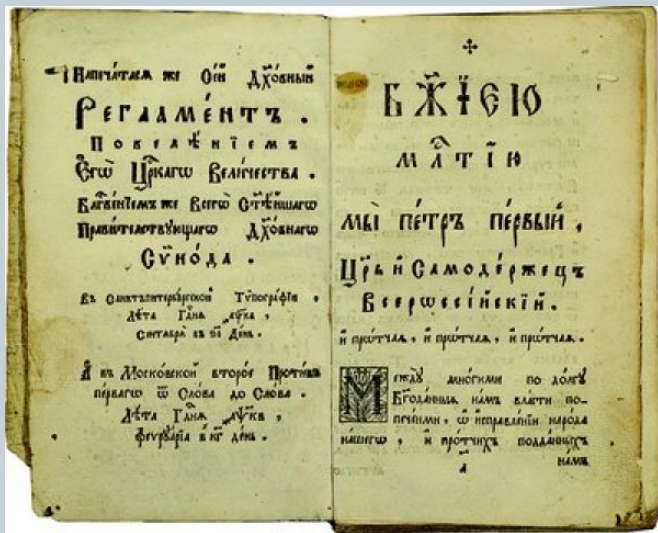 Напечатасѧ же Сей Дꙋхѡвный
Регла́ментъ .
Повелѣ́нїемъ
Єгѡ̀ Цр҃каго Вели́чества .
Блгⷭ҇ве́нїемъ же Всегѡ̀ Ст҃ѣ́йшагѡ
Прави́телствꙋющагѡ Дх҃о́внагѡ
Сѷно́да .
Въ Санктъпитербꙋ́ргской Тѷпогра́фїи ,
Лѣ́та Гдⷭ҇нѧ ,
Септе́мврїа въ де́нь .
А҆ въ Моско́вской второ́е Про́тивъ
пе́рвагѡ ѿ Сло́ва до Сло́ва .
Лѣ́та Гдⷭ҇нѧ ҂аѱк҃в ,
феврꙋа́рїа в к҃г де́нь .
Б҃ЖЇЕЮ
МЛⷭ҇ТЇЮ
МЫ̀ ПЕ́ТРЪ ПЕ́РВЫЙ ,
Цр҃ь и҆ Самоде́ржецъ
Всерѡссі́йскїй .
и҆ прѡ́тчаѧ , и҆ прѡ́тчаѧ , и҆ прѡ́тчаѧ .
Междꙋ̀ мно́гими по до́лгꙋ
Бг҃ода́нныѧ на́мъ вла́сти по-
пече́ньми , ѡ҆ и҆справле́нїи наро́да
на́шегѡ , и҆ про́тчихъ по́дданныхъ
а҃ на́мъ